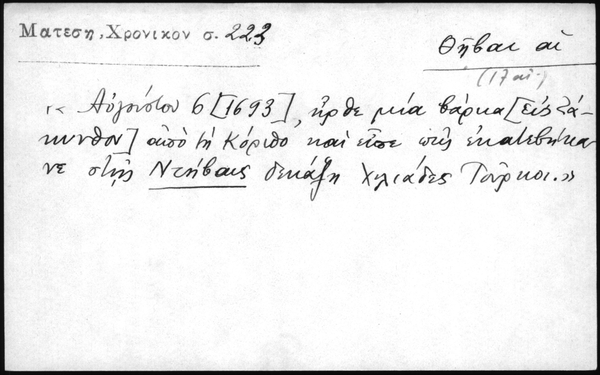 Ματεση, Χρονικον σ. 223
Θῆβαι αἱ
(17 αἰ.)
"« Αὐγούστου 6 [1693], ἦρθε μία βάρκα [εἰς Ζά-
κυνθον] ἀπὸ τὴ Κόρθο καὶ εἶπε πῶς ἐκατεβήκα-
νε στὴς Ντήβαις δεκάξη χιλιάδες Τοῦρκοι.»